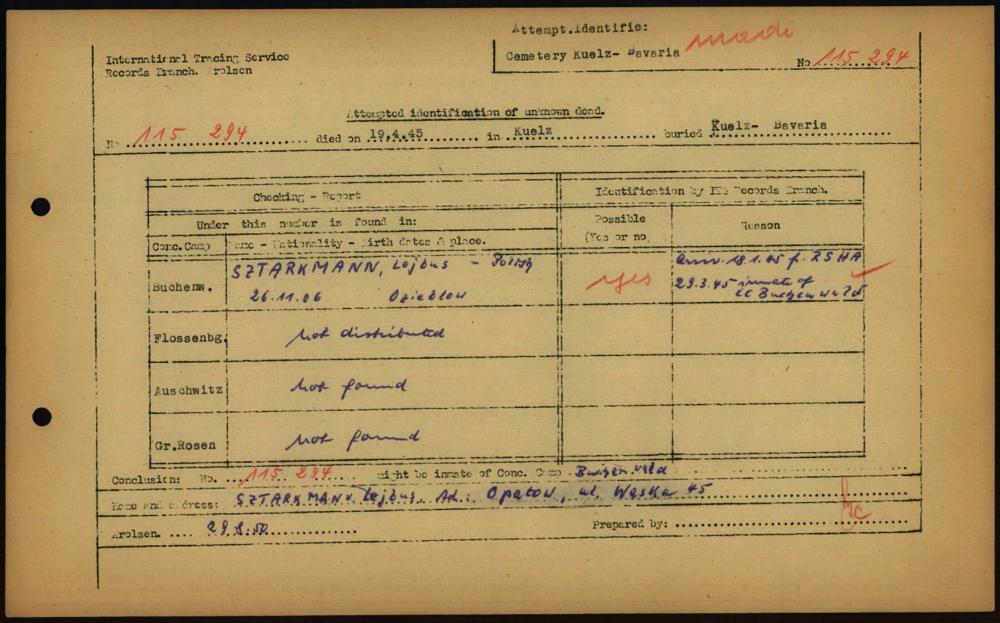 Attempt.Identific:
Cemetery Kuelz- Bavaria
No 115 294
International Tracing Service
Records Branch. Arolsen
Attempted identification of unknown dead.
No 115 294 died on 19.4.45 in Kuelz buried Kuelz- Bavaria
Checking - Report
Identification by ITS Records Branch.
Under this number is found in:
Possible
(Yes or no)
Reason
Conc.Camp
Name - Nationality - Birth dates & place.
Buchenw.
SZTARKMANN, Lejbus - Polish
26.11.06 Dzieblow
yes
18.1.45 f. RSHA
29.3.45 inmate of
CC Buchenwald
Flossenbg.
not distributed
Auschwitz
not found
Gr.Rosen
not found
Conclusion: No. 115 294 might be inmate of Conc. Camp Buchenwald
Name and address: SZTARKMANN Lejbus, Ad.: Opatow, ul. Waska 45
Arolsen. 29.8.50 Prepared by: